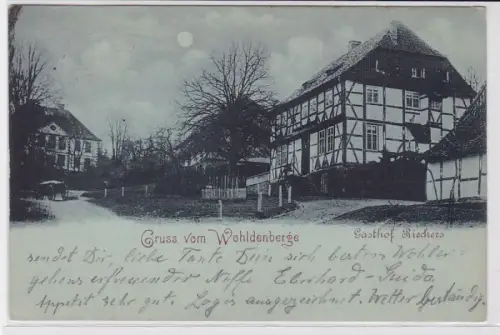 Gruss vom Wohldenberge
Gasthof Riechers
sendet Dir, liebe Tante Dein sich besten Wohler-
gehens erfreuender Neffe Eberhard-Guido.
Appetit sehr gut. Logis ausgezeichnet. Wetter beständig.